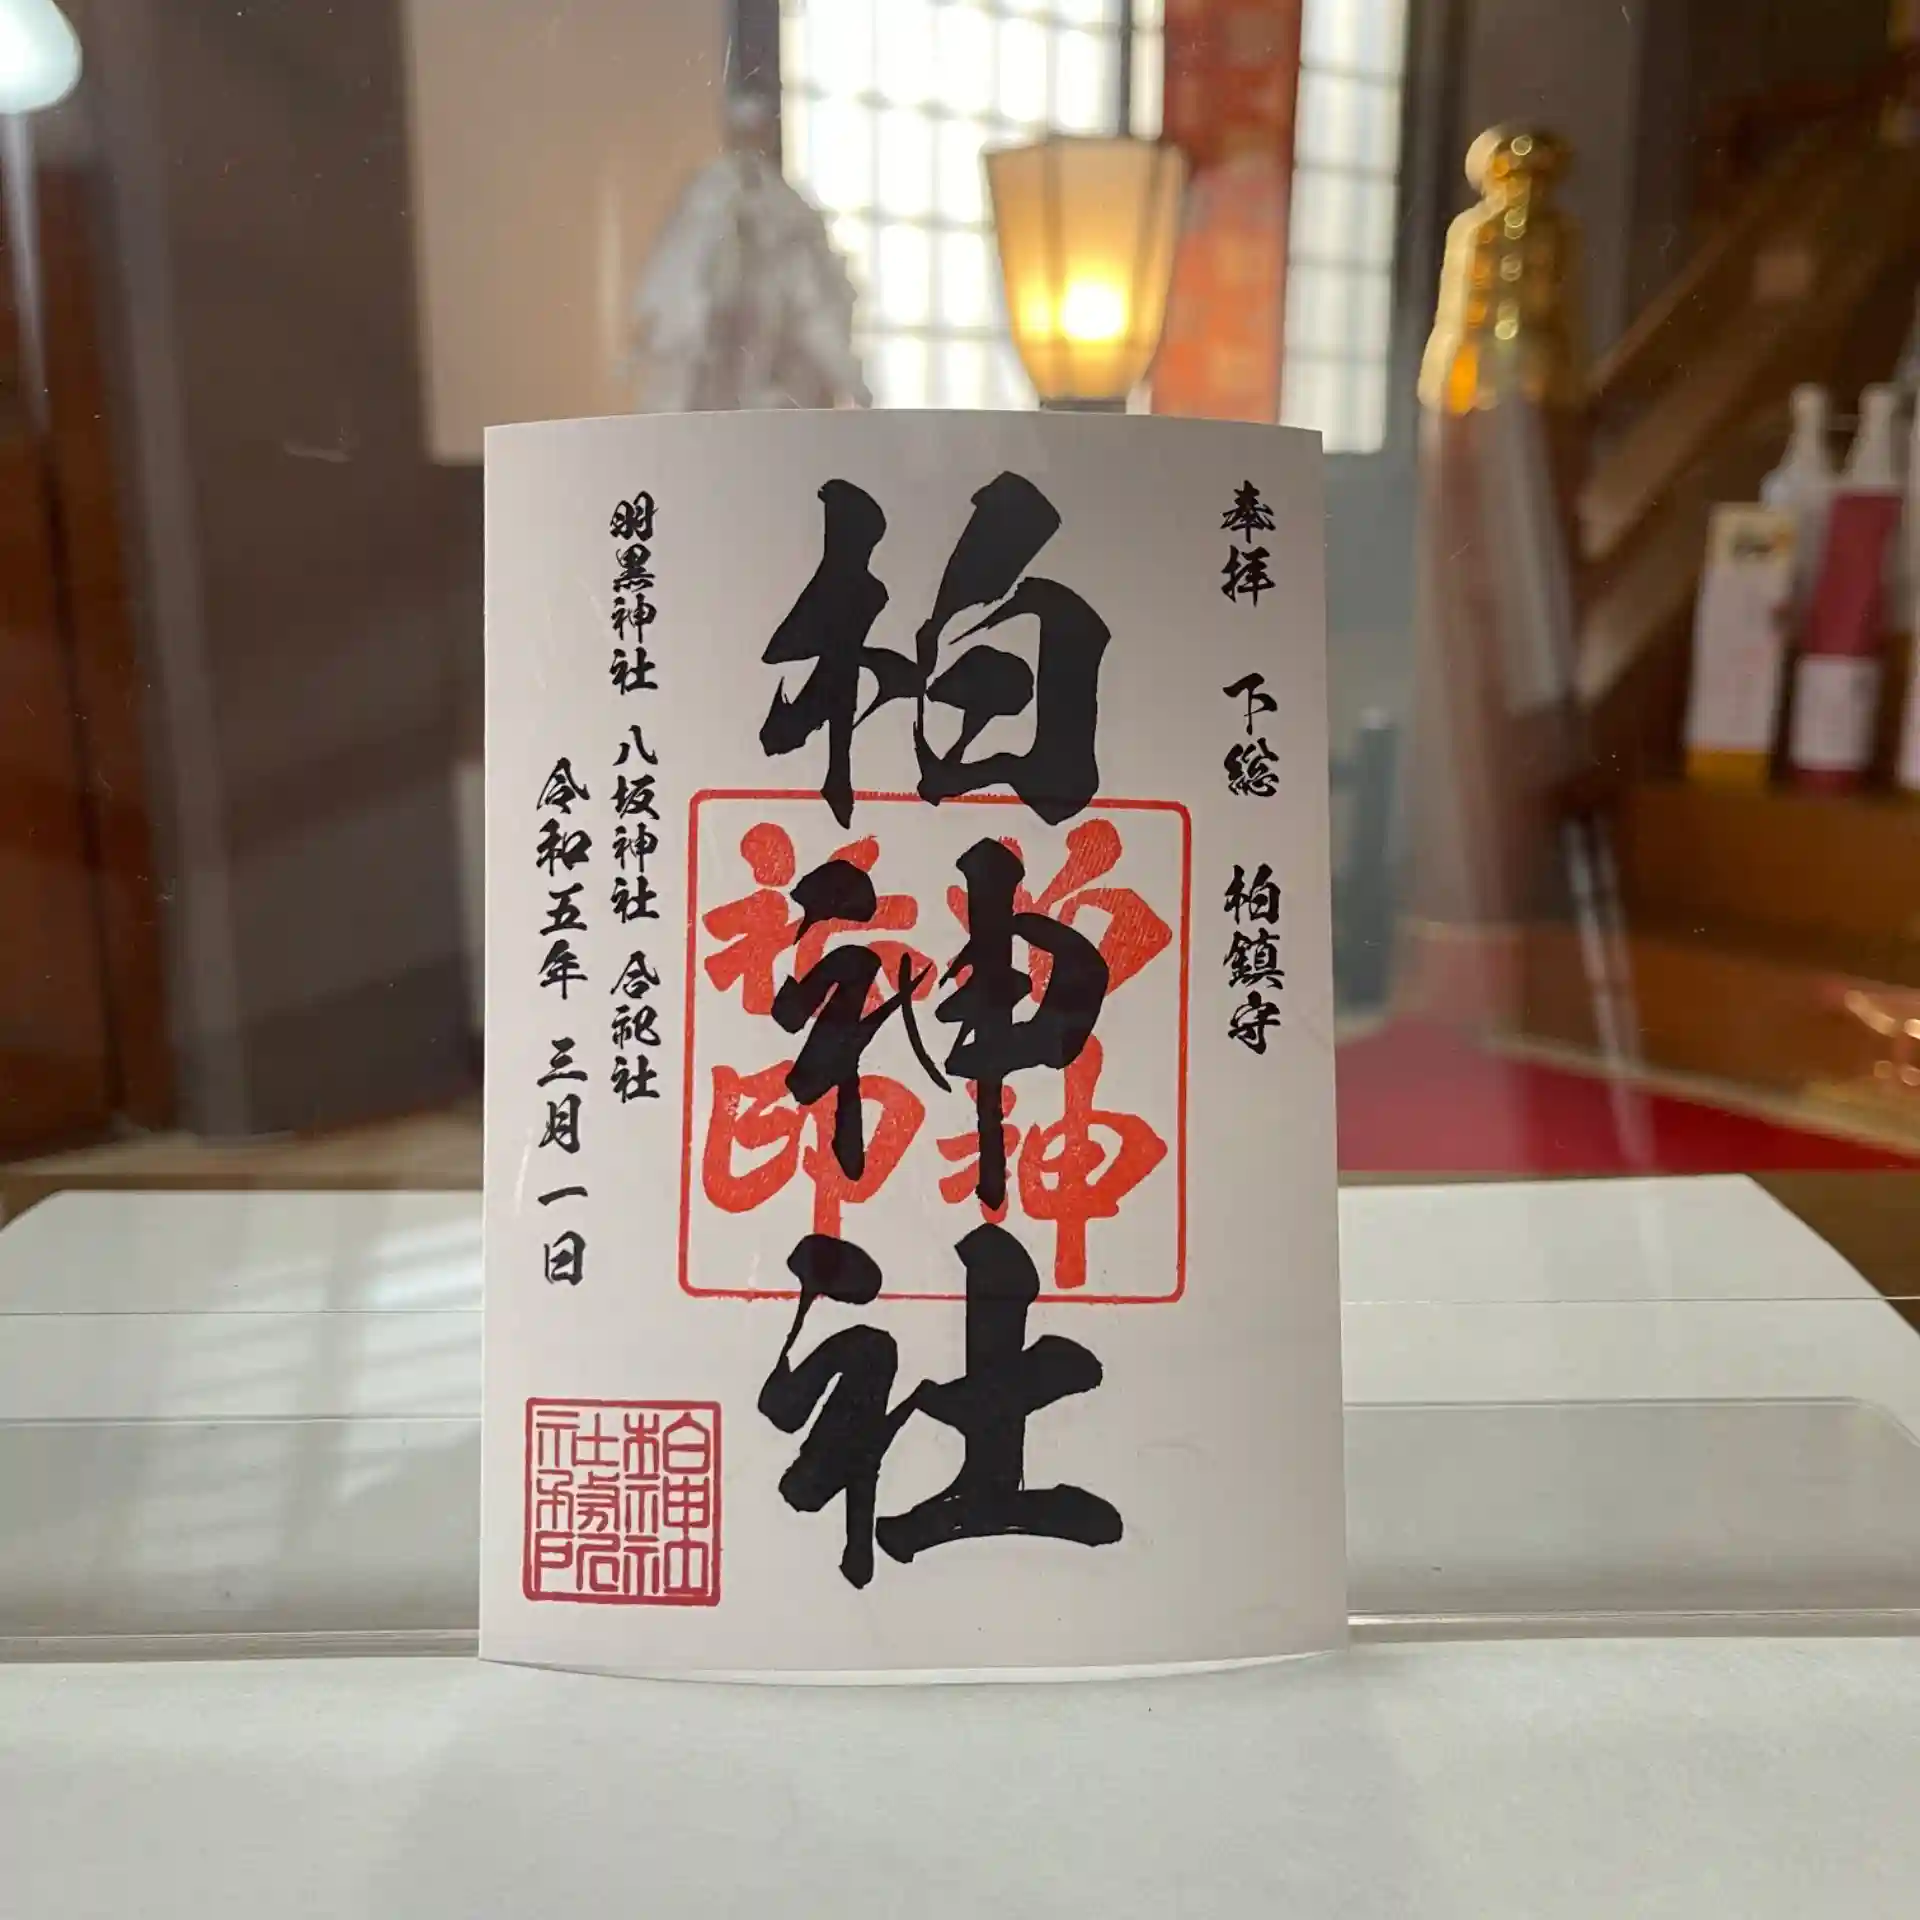 奉拝 下総 柏鎮守
柏神社
柏神
社印
羽黒神社 八坂神社 合祀社
令和五年 三月一日
柏神社
社務所